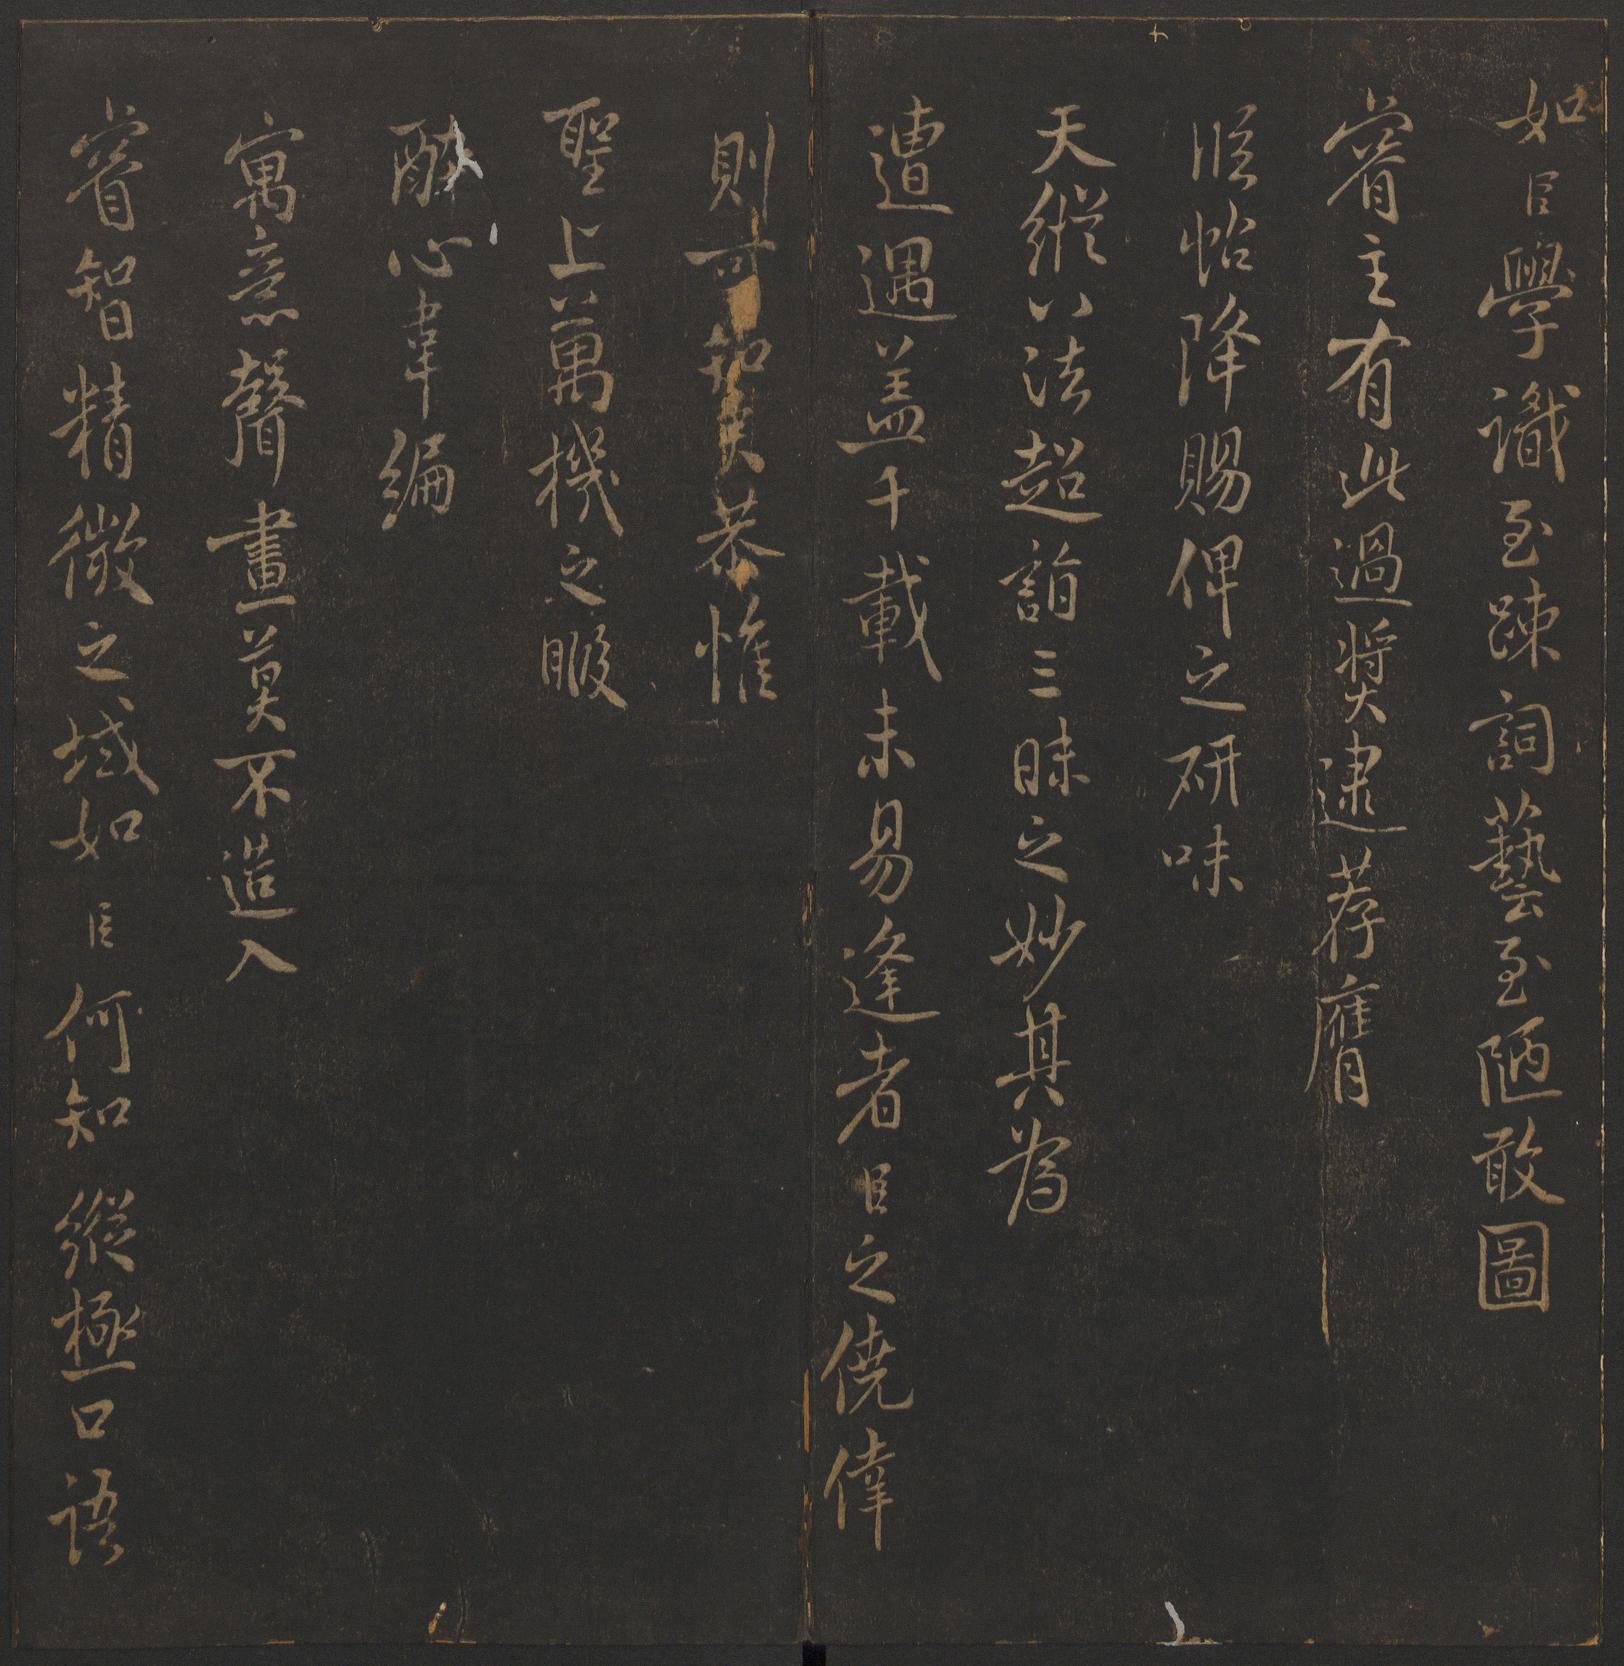 如臣學識至踈詞藝至陋敢圖
睿主有此過奬逮荐膺
臨帖降賜俾之研味
天縱八法超詣三昧之妙其為
遭遇盖千載未易逢者臣之僥倖
則可知矣恭惟
聖上萬機之暇
酣心韋編
寓意聲畫莫不造入
睿智精微之域如臣何知縱極口語